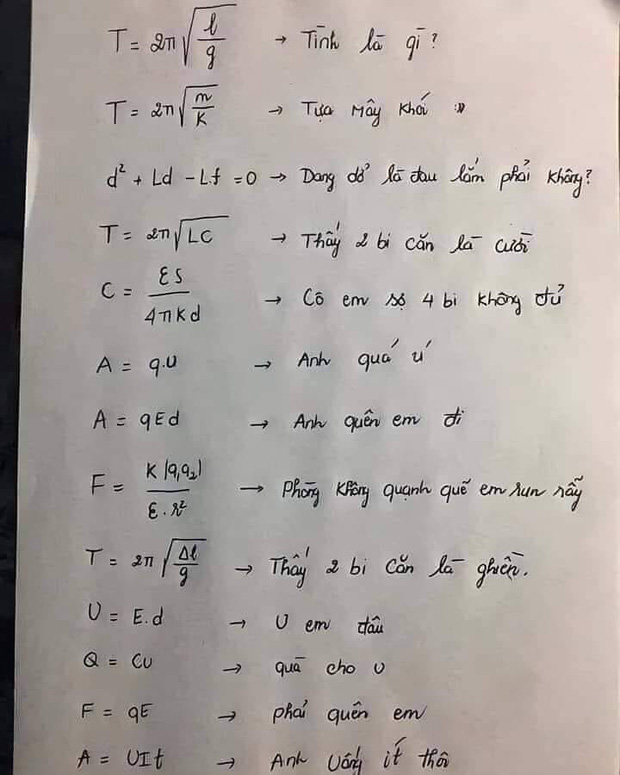 T = 2π√(l/g) → Tình là gì?
T = 2π√(m/K) → Tựa mây khói »
d² + Ld - Lf = 0 → Dang dở là đau lắm phải không?
T = 2π√LC → Thấy 2 bi căn là cười
C = ES/4πKd → Cô em sợ 4 bi không đủ
A = q.U → Anh quá ú
A = qEd → Anh quên em đi
F = K|q₁q₂|/ε.r² → Phòng không quạnh quẽ em run rẫy
T = 2π√(Δl/g) → Thấy 2 bi căn là ghiền.
U = E.d → U em đâu
Q = CU → quà cho U
F = qE → phải quên em
A = UIt → Anh Uống ít thôi